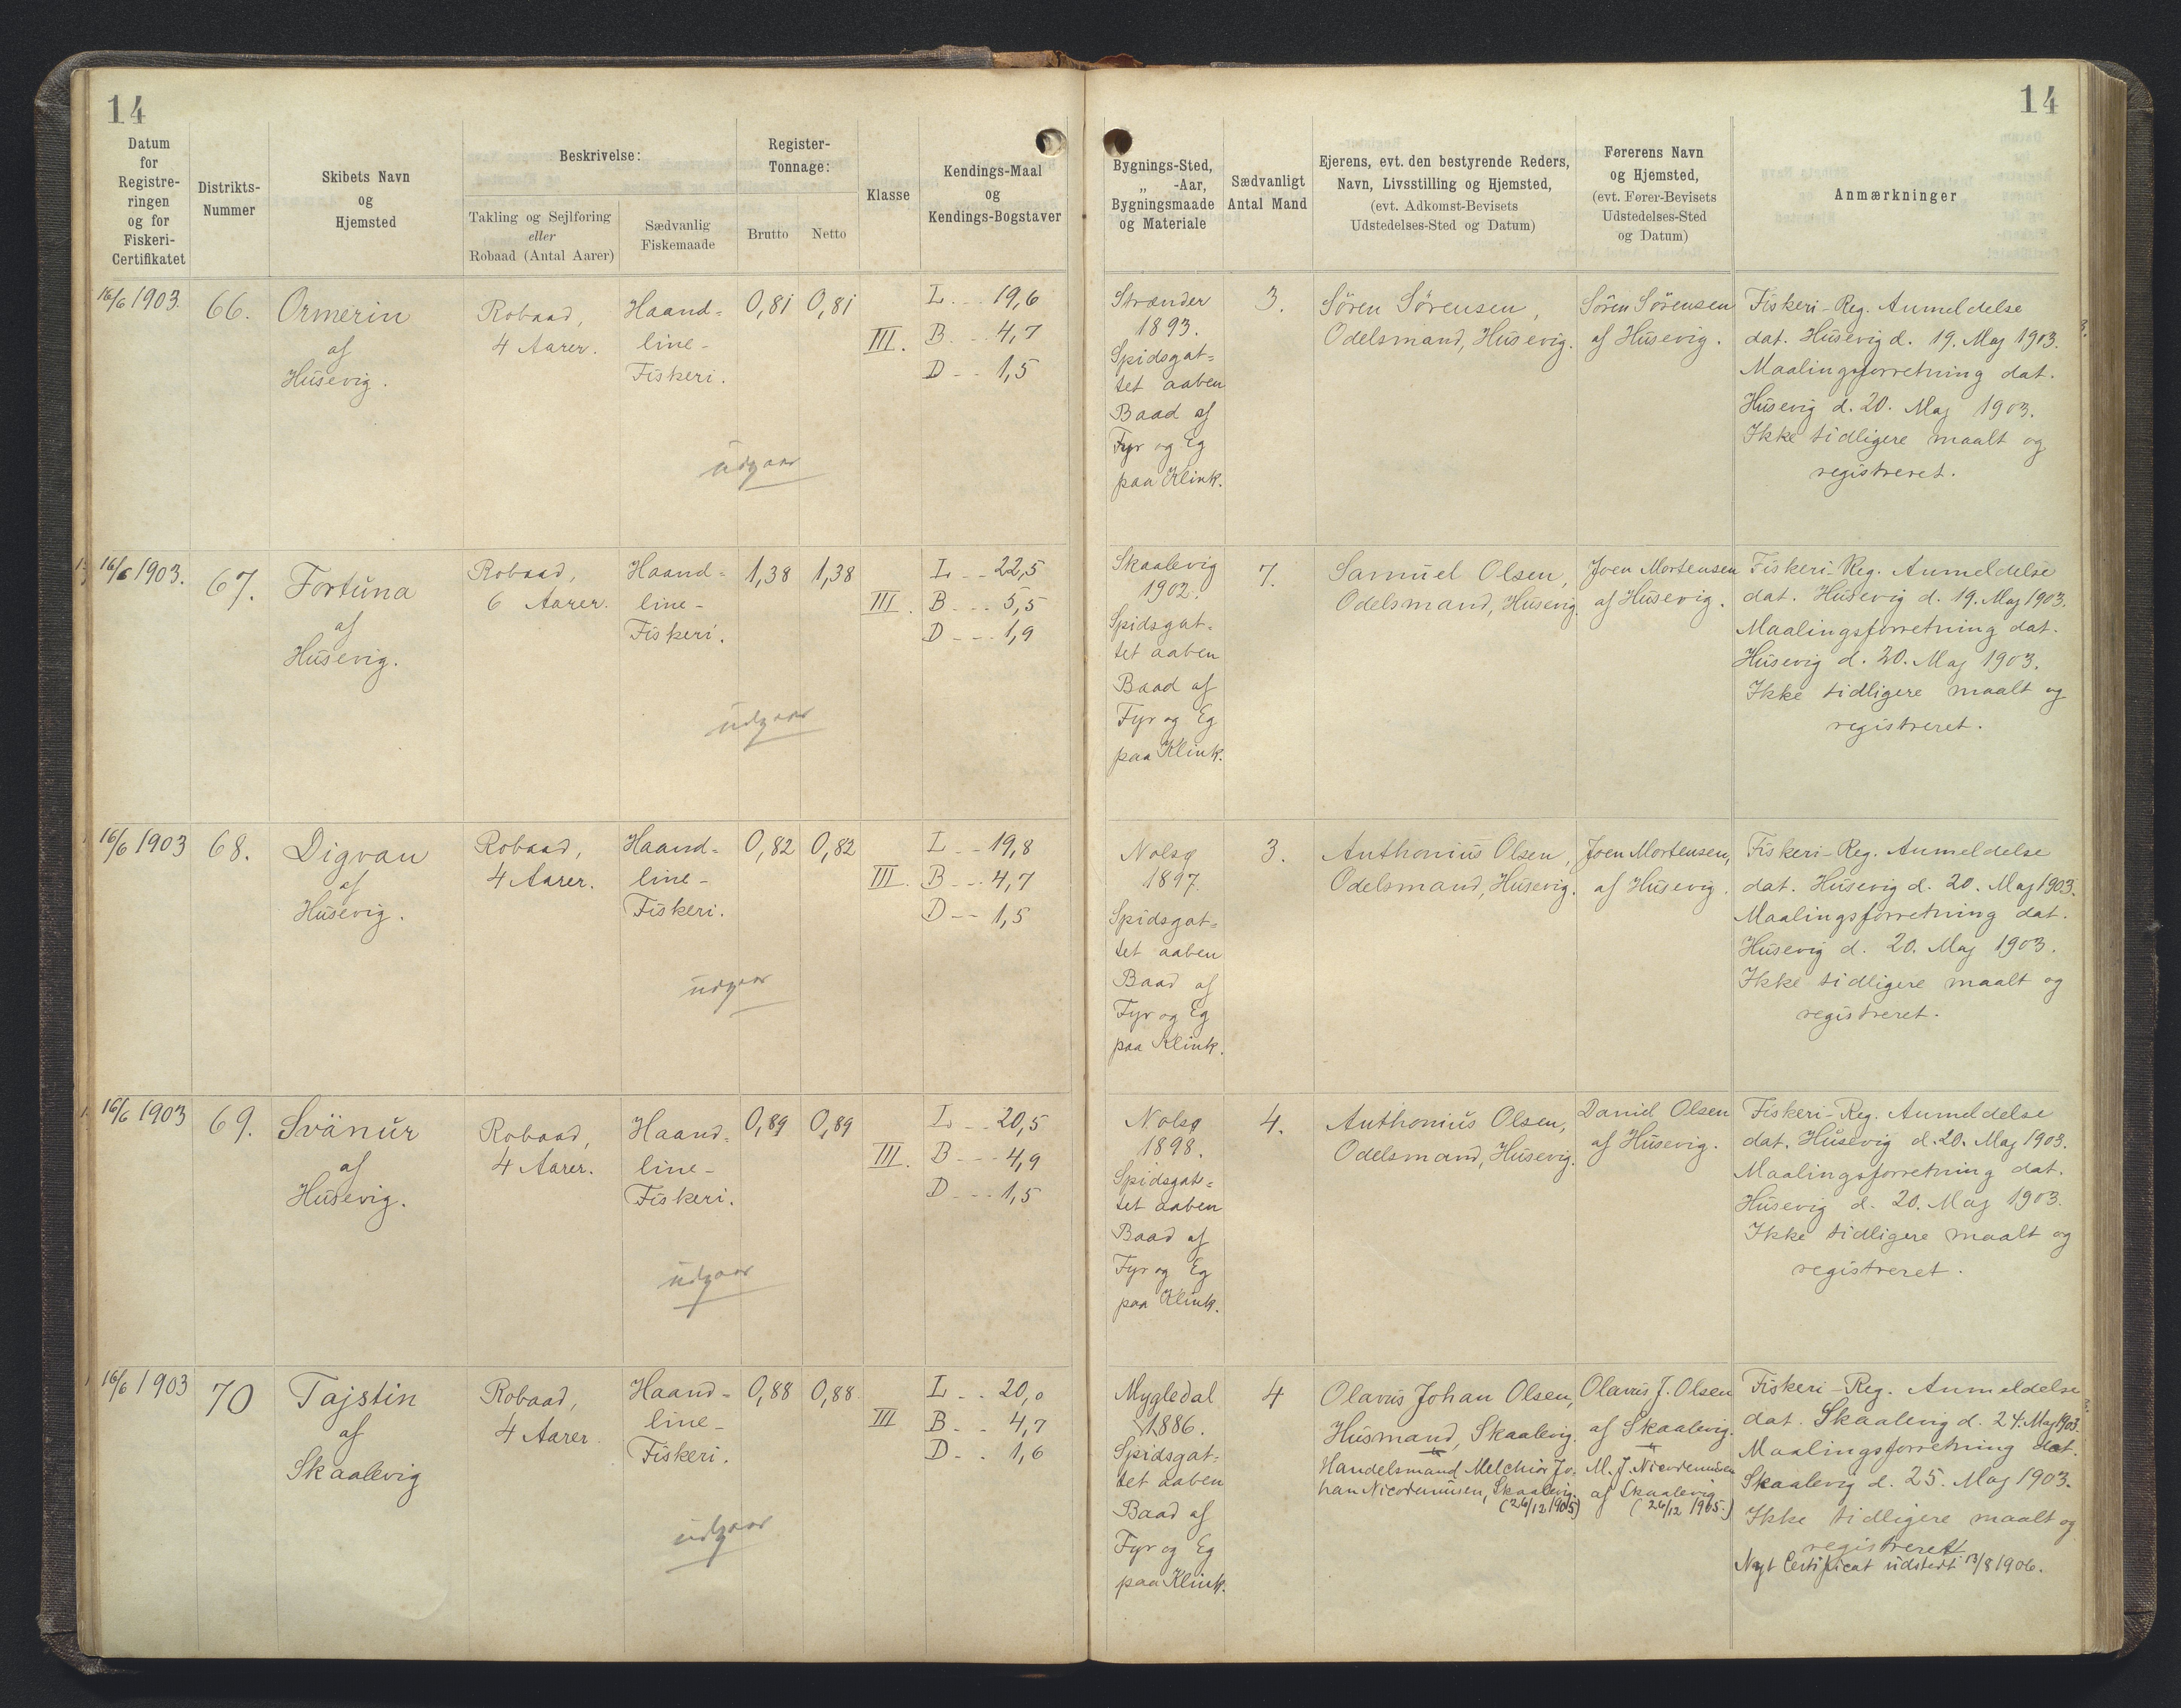 14
14
Datum
for
Registre-
ringen
og for
Fiskeri-
Certifikatet
Distrikts-
Nummer
Skibets Navn
og
Hjemsted
Beskrivelse:
Takling og Sejlføring
eller
Robaad (Antal Aarer)
Sædvanlig
Fiskemaade
Register-
Tonnage:
Brutto
Netto
Klasse
Kendings-Maal
og
Kendings-Bogstaver
Bygnings-Sted,
„ -Aar,
Bygningsmaade
og Materiale
Sædvanligt
Antal Mand
Ejerens, evt. den bestyrende Reders,
Navn, Livsstilling og Hjemsted,
(evt. Adkomst-Bevisets
Udstedelses-Sted og Datum)
Førerens Navn
og Hjemsted,
(evt. Fører-Bevisets
Udstedelses-Sted
og Datum)
Anmærkninger
16/6 1903.
66.
Ormerin
af
Husevig.
Robaad,
4 Aarer.
Haand=
line-
Fiskeri.
0,81
0,81
III.
L. - - 19,6
B. - - 4,7
D - - 1,5
Strænder
1893.
Spidsgat=
tet aaben
Baad af
Fyr og Eg
paa Klink.
3.
Sören Sörensen,
Odelsmand, Husevig.
Sören Sörensen
af Husevig.
Fiskeri-Reg. Anmeldelse
dat. Husevig d. 19. Maj 1903.
Maalingsforretning dat.
Husevig d. 20. Maj 1903.
Ikke tidligere maalt og
registreret.
udgaar
16/6 1903.
67.
Fortuna
af
Husevig.
Robaad,
6 Aarer.
Haand=
line-
Fiskeri.
1,38
1,38
III.
L - - 22,5
B. - - 5,5
D - - - 1,9
Skaalevig
1902.
Spidsgat=
tet aaben
Baad af
Fyr og Eg
paa Klink.
7.
Samuel Olsen,
Odelsmand, Husevig.
Joen Mortensen
af Husevig.
Fiskeri-Reg. Anmeldelse
dat. Husevig d. 19. Maj 1903.
Maalingsforretning dat.
Husevig d. 20. Maj 1903.
Ikke tidligere maalt og
registreret.
udgaar
16/6 1903
68.
Digvan
af
Husevig.
Robaad,
4 Aarer.
Haand=
line-
Fiskeri.
0,82
0,82
III.
L - - 19,8
B - - 4,7
D - - 1,5
Nolsø
1897.
Spidsgat=
tet aaben
Baad af
Fyr og Eg
paa Klink.
3.
Anthonius Olsen,
Odelsmand, Husevig.
Joen Mortensen,
af Husevig.
Fiskeri-Reg. Anmeldelse
dat. Husevig d. 20. Maj 1903.
Maalingsforretning dat.
Husevig d. 20. Maj 1903.
Ikke tidligere maalt og
registreret.
udgaar
16/6 1903
69.
Svänur
af
Husevig.
Robaad,
4 Aarer.
Haand=
line-
Fiskeri.
0,89
0,89
III.
L - - 20,5
B - - - 4,9
D - - - 1,5
Nolsø
1898.
Spidsgat=
tet aaben
Baad af
Fyr og Eg
paa Klink.
4.
Anthonius Olsen,
Odelsmand, Husevig.
Daniel Olsen
af Husevig.
Fiskeri-Reg. Anmeldelse
dat. Husevig d. 20. Maj 1903.
Maalingsforretning dat.
Husevig d. 20. Maj 1903.
Ikke tidligere maalt og
registreret.
udgaar
16/6 1903
70
Tajstin
af
Skaalevig
Robaad,
4 Aarer.
Haand=
line-
Fiskeri.
0,88
0,88
III
L - - 20,0
B - - 4,7
D - - 1,6
Mygledal
1886.
Spidsgat=
tet aaben
Baad af
Fyr og Eg
paa Klink.
4
Olavus Johan Olsen,
Husmand, Skaalevig.
Handelsmand Melchior Jo-
han Nicodemusen, Skaalevig.
(26/12 1905)
Olavus J. Olsen
af Skaalevig.
M. J. Nicodemusen
af Skaalevig
(26/12 1905.)
Fiskeri-Reg. Anmeldelse
dat. Skaalevig d. 24. Maj 1903.
Maalingsforretning dat.
Skaalevig d. 25. Maj 1903.
Ikke tidligere maalt og
registreret
Nyt Certificat udstedt 13/8 1906.
udgaar